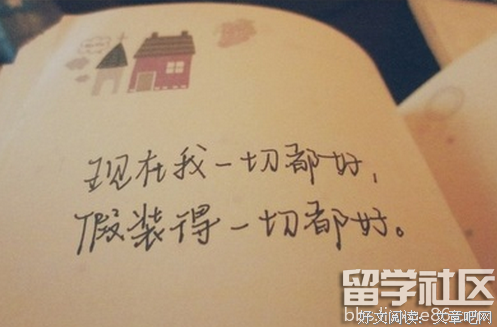 现在我一切都好，
假装得一切都好。
留学社区
好文阅读：文章吧网